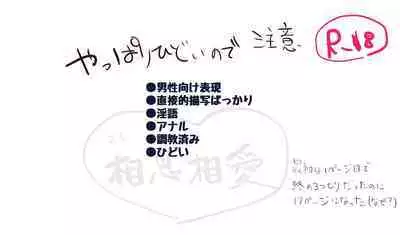 やっぱりひどいので 注意
R-18
●男性向け表現
●直接的描写ばっかり
●淫語
●アナル
●調教済み
●ひどい
相思相愛
ページ目で
終わるつもりだったのに
17ページになった(なぜ?)